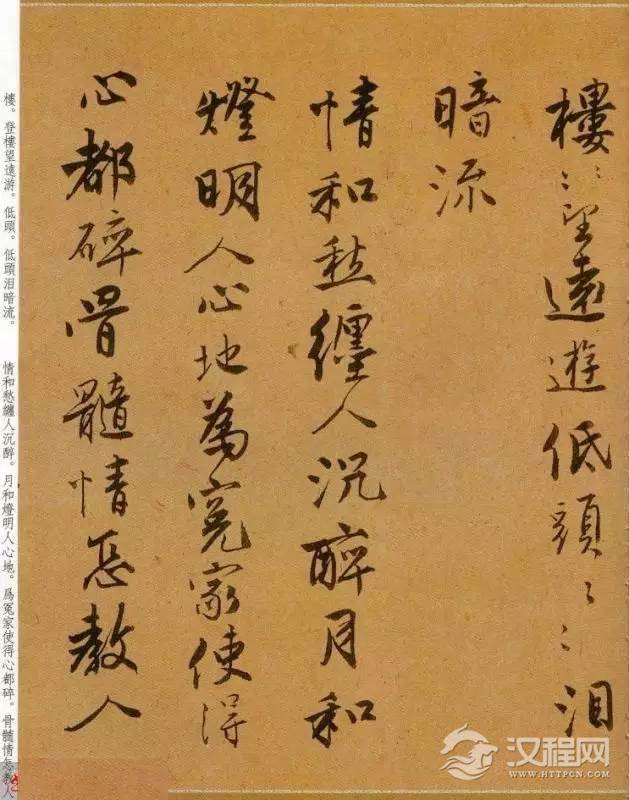 樓〻望遠遊低頭〻〻泪
暗流
情和愁纏人沉醉月和
燈明人心地為冤家使得
心都碎骨髓情怎教人
樓。登樓望遠游。低頭。低頭泪暗流。 情和愁纏人沉醉。月和燈明人心地。爲冤家使得心都碎。骨髓情怎教人
汉程网
WWW.HTTPCN.COM